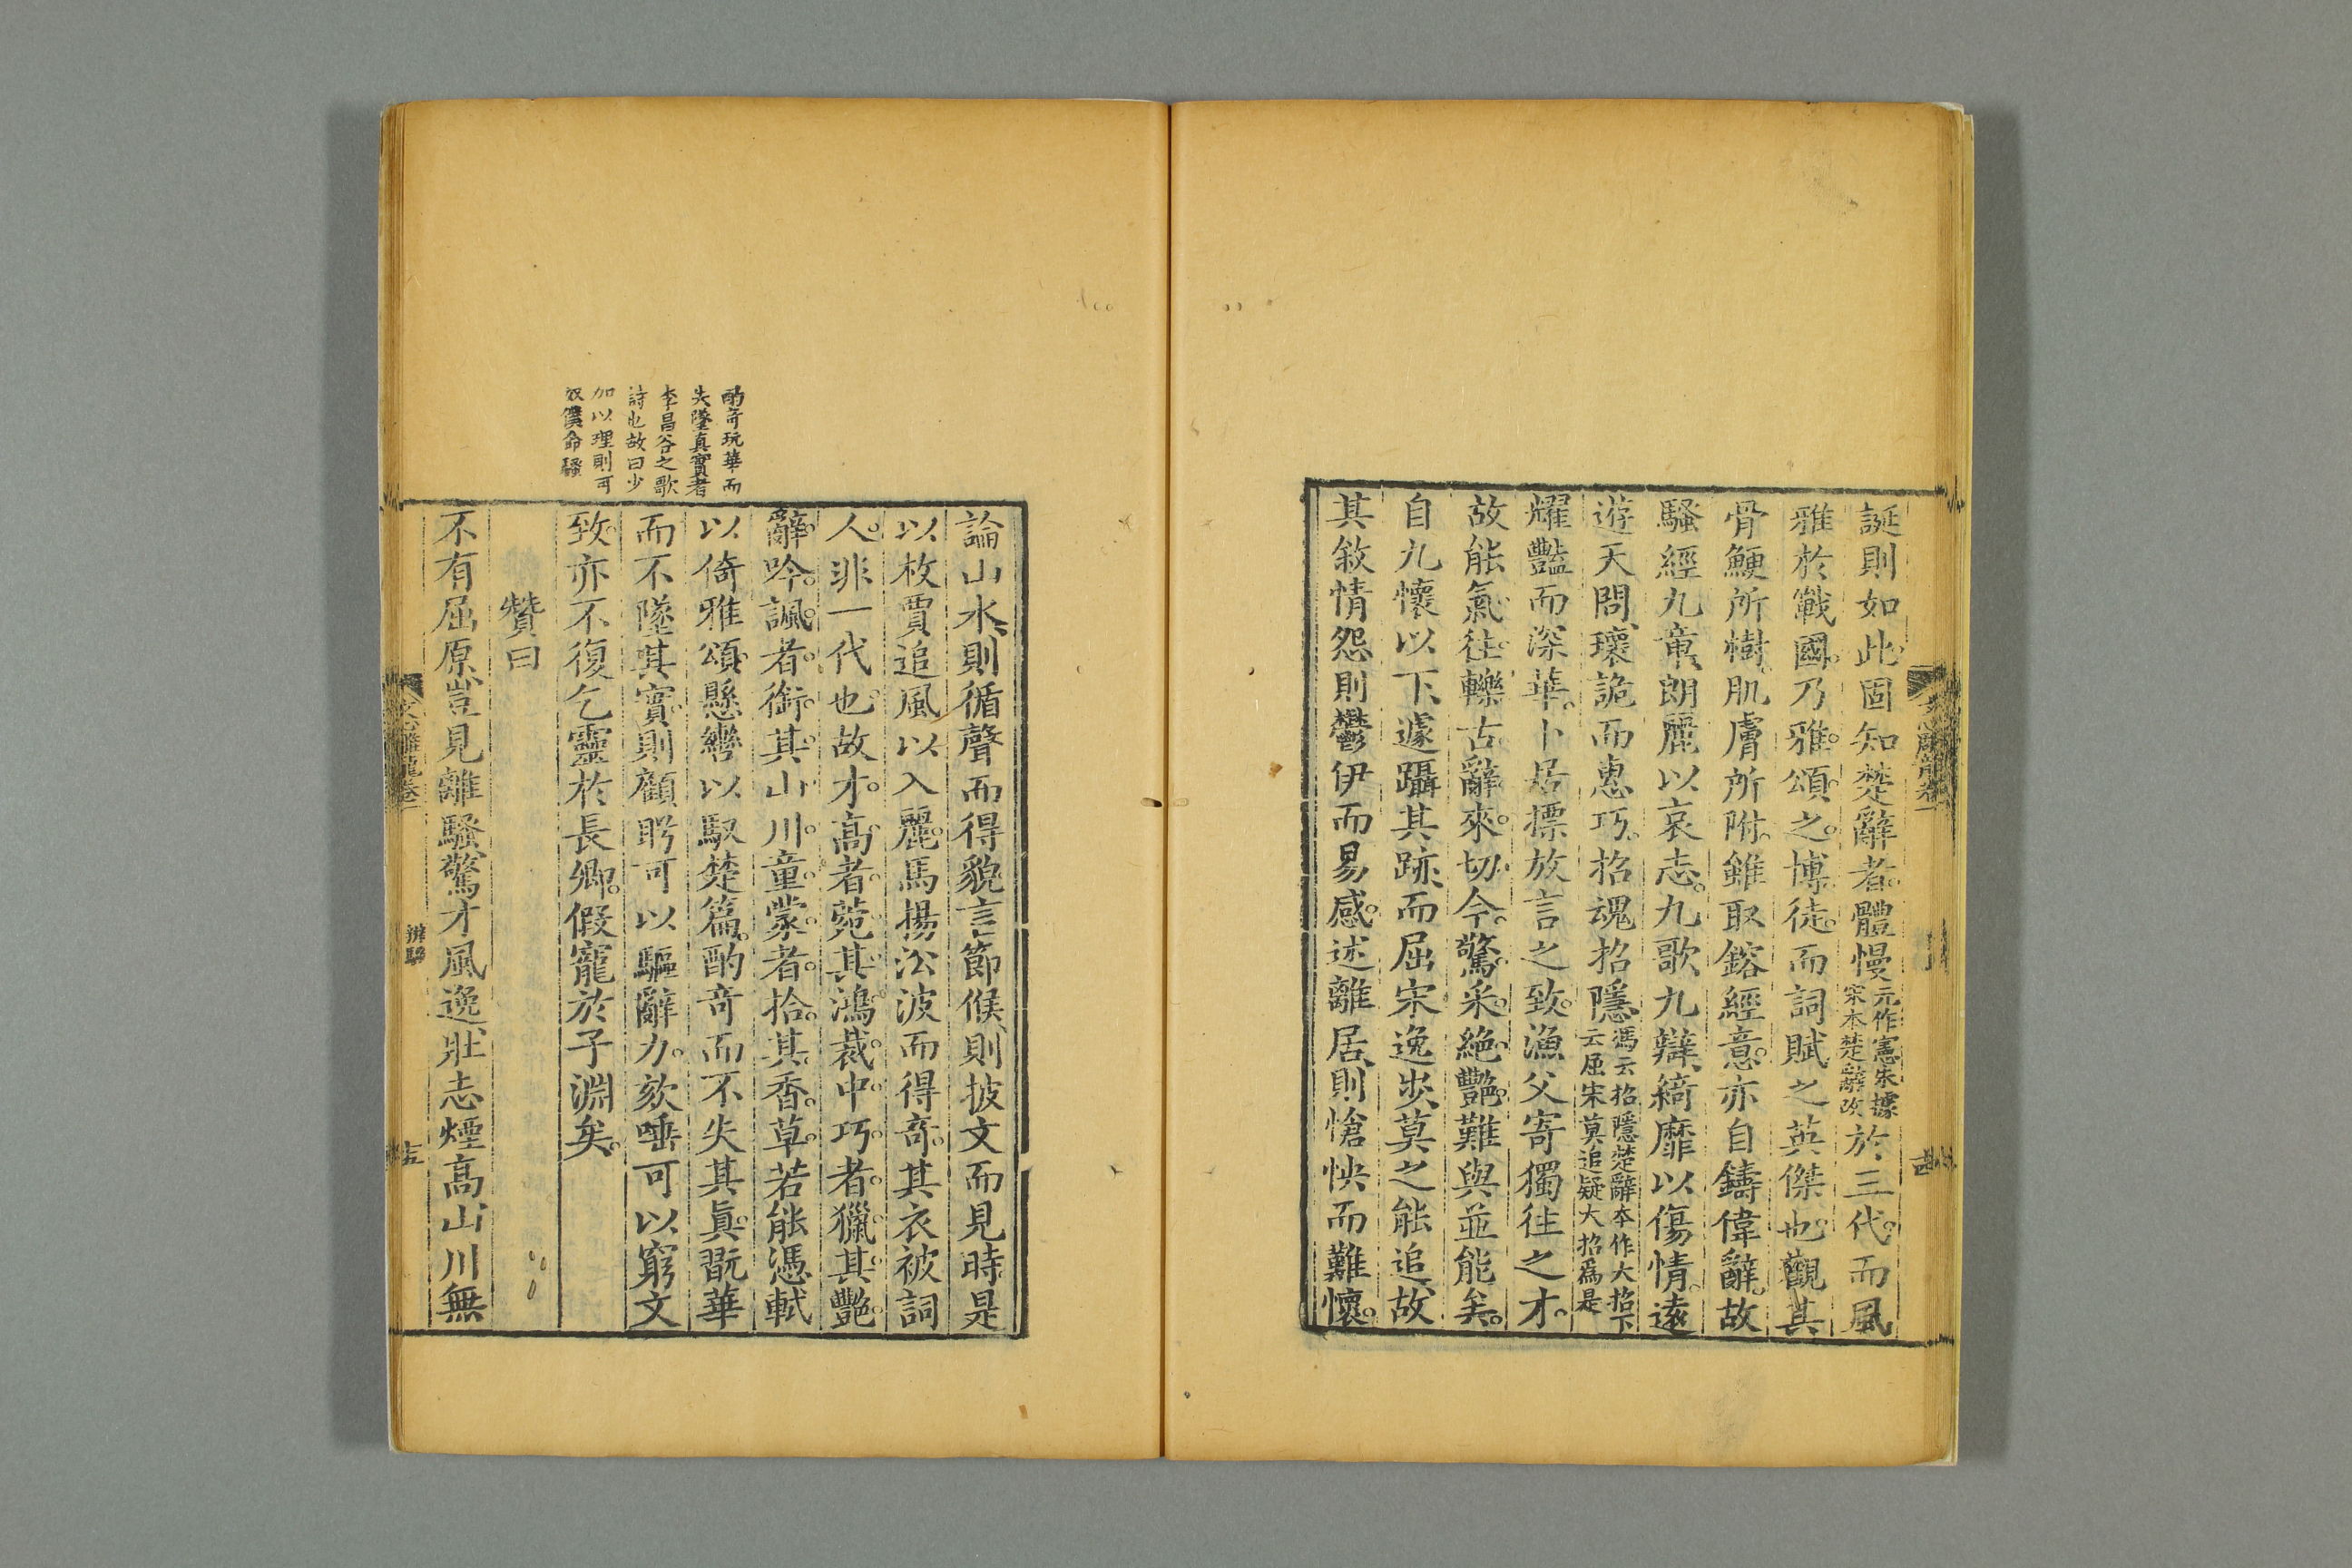 誕則如此固知楚辭者體慢元作憲朱據宋本楚辭改於三代而風
雅於戰國乃雅頌之博徒而詞賦之英傑也觀其
骨鯁所樹肌膚所附雖取鎔經意亦自鑄偉辭故
騷經九章朗麗以哀志九歌九辯綺靡以傷情遠
遊天問瓌詭而惠巧招魂招隱馮云招隱楚辭本作大招下云屈宋莫追疑大招爲是
耀豔而深華卜居摽放言之致漁父寄獨往之才
故能氣往轢古辭來切今驚采絶艷難與並能矣
自九懷以下遽躡其跡而屈宋逸步莫之能追故
其敘情怨則鬱伊而易感述離居則愴怏而難懷
論山水則循聲而得貌言節候則披文而見時是
以枚賈追風以入麗馬揚沿波而得奇其衣被詞
人非一代也故才高者菀其鴻裁中巧者獵其艷
辭吟諷者銜其山川童蒙者拾其香草若能憑軾
以倚雅頌懸轡以馭楚篇酌奇而不失其眞翫華
而不墜其實則顧盻可以驅辭力欬唾可以窮文
致亦不復乞靈於長卿假寵於子淵矣
贊曰
不有屈原豈見離騷驚才風逸壯志煙高山川無
酌奇玩華而
失墜真實者
李昌谷之歌
詩也故曰少
加以理則可
奴僕命騷
文心雕龍卷一
辨騷
十五